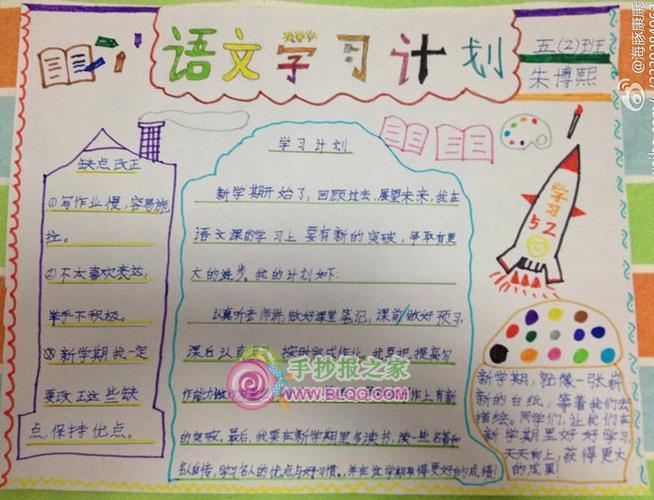 语文学习计划
五(2)班
朱博熙
缺点改正
①写作业慢,容易拖
拉。
②不太喜欢表达,
举手不积极。
③新学期我一定
要改正这些缺
点,保持优点。
学习计划
新学期开始了,回顾过去,展望未来,我在
语文课的学习上要有新的突破,争取有更
大的进步。我的计划如下:
认真听老师讲,做好课堂笔记,课前做好预习,
课后认真 按时完成作业。我要把提高写
作能力做 作上有新
的突破。最后,我要在新学期里多读书,读一些名著和
名人自传,学习名人的优点与好习惯。并在这学期取得更好的成绩!
学习
52
新学期,就像一张崭
新的白纸,等着我们去
描绘。同学们,让我们在
新学期里好好学习
天天向上,获得更大
的成果!
手抄报之家
WWW.BLQG.COM
@海豚康康